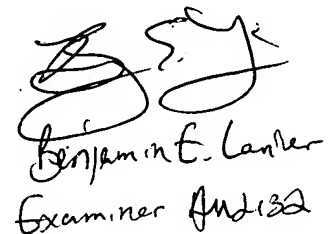 Benjamin E. Lanier
Examiner AU2132